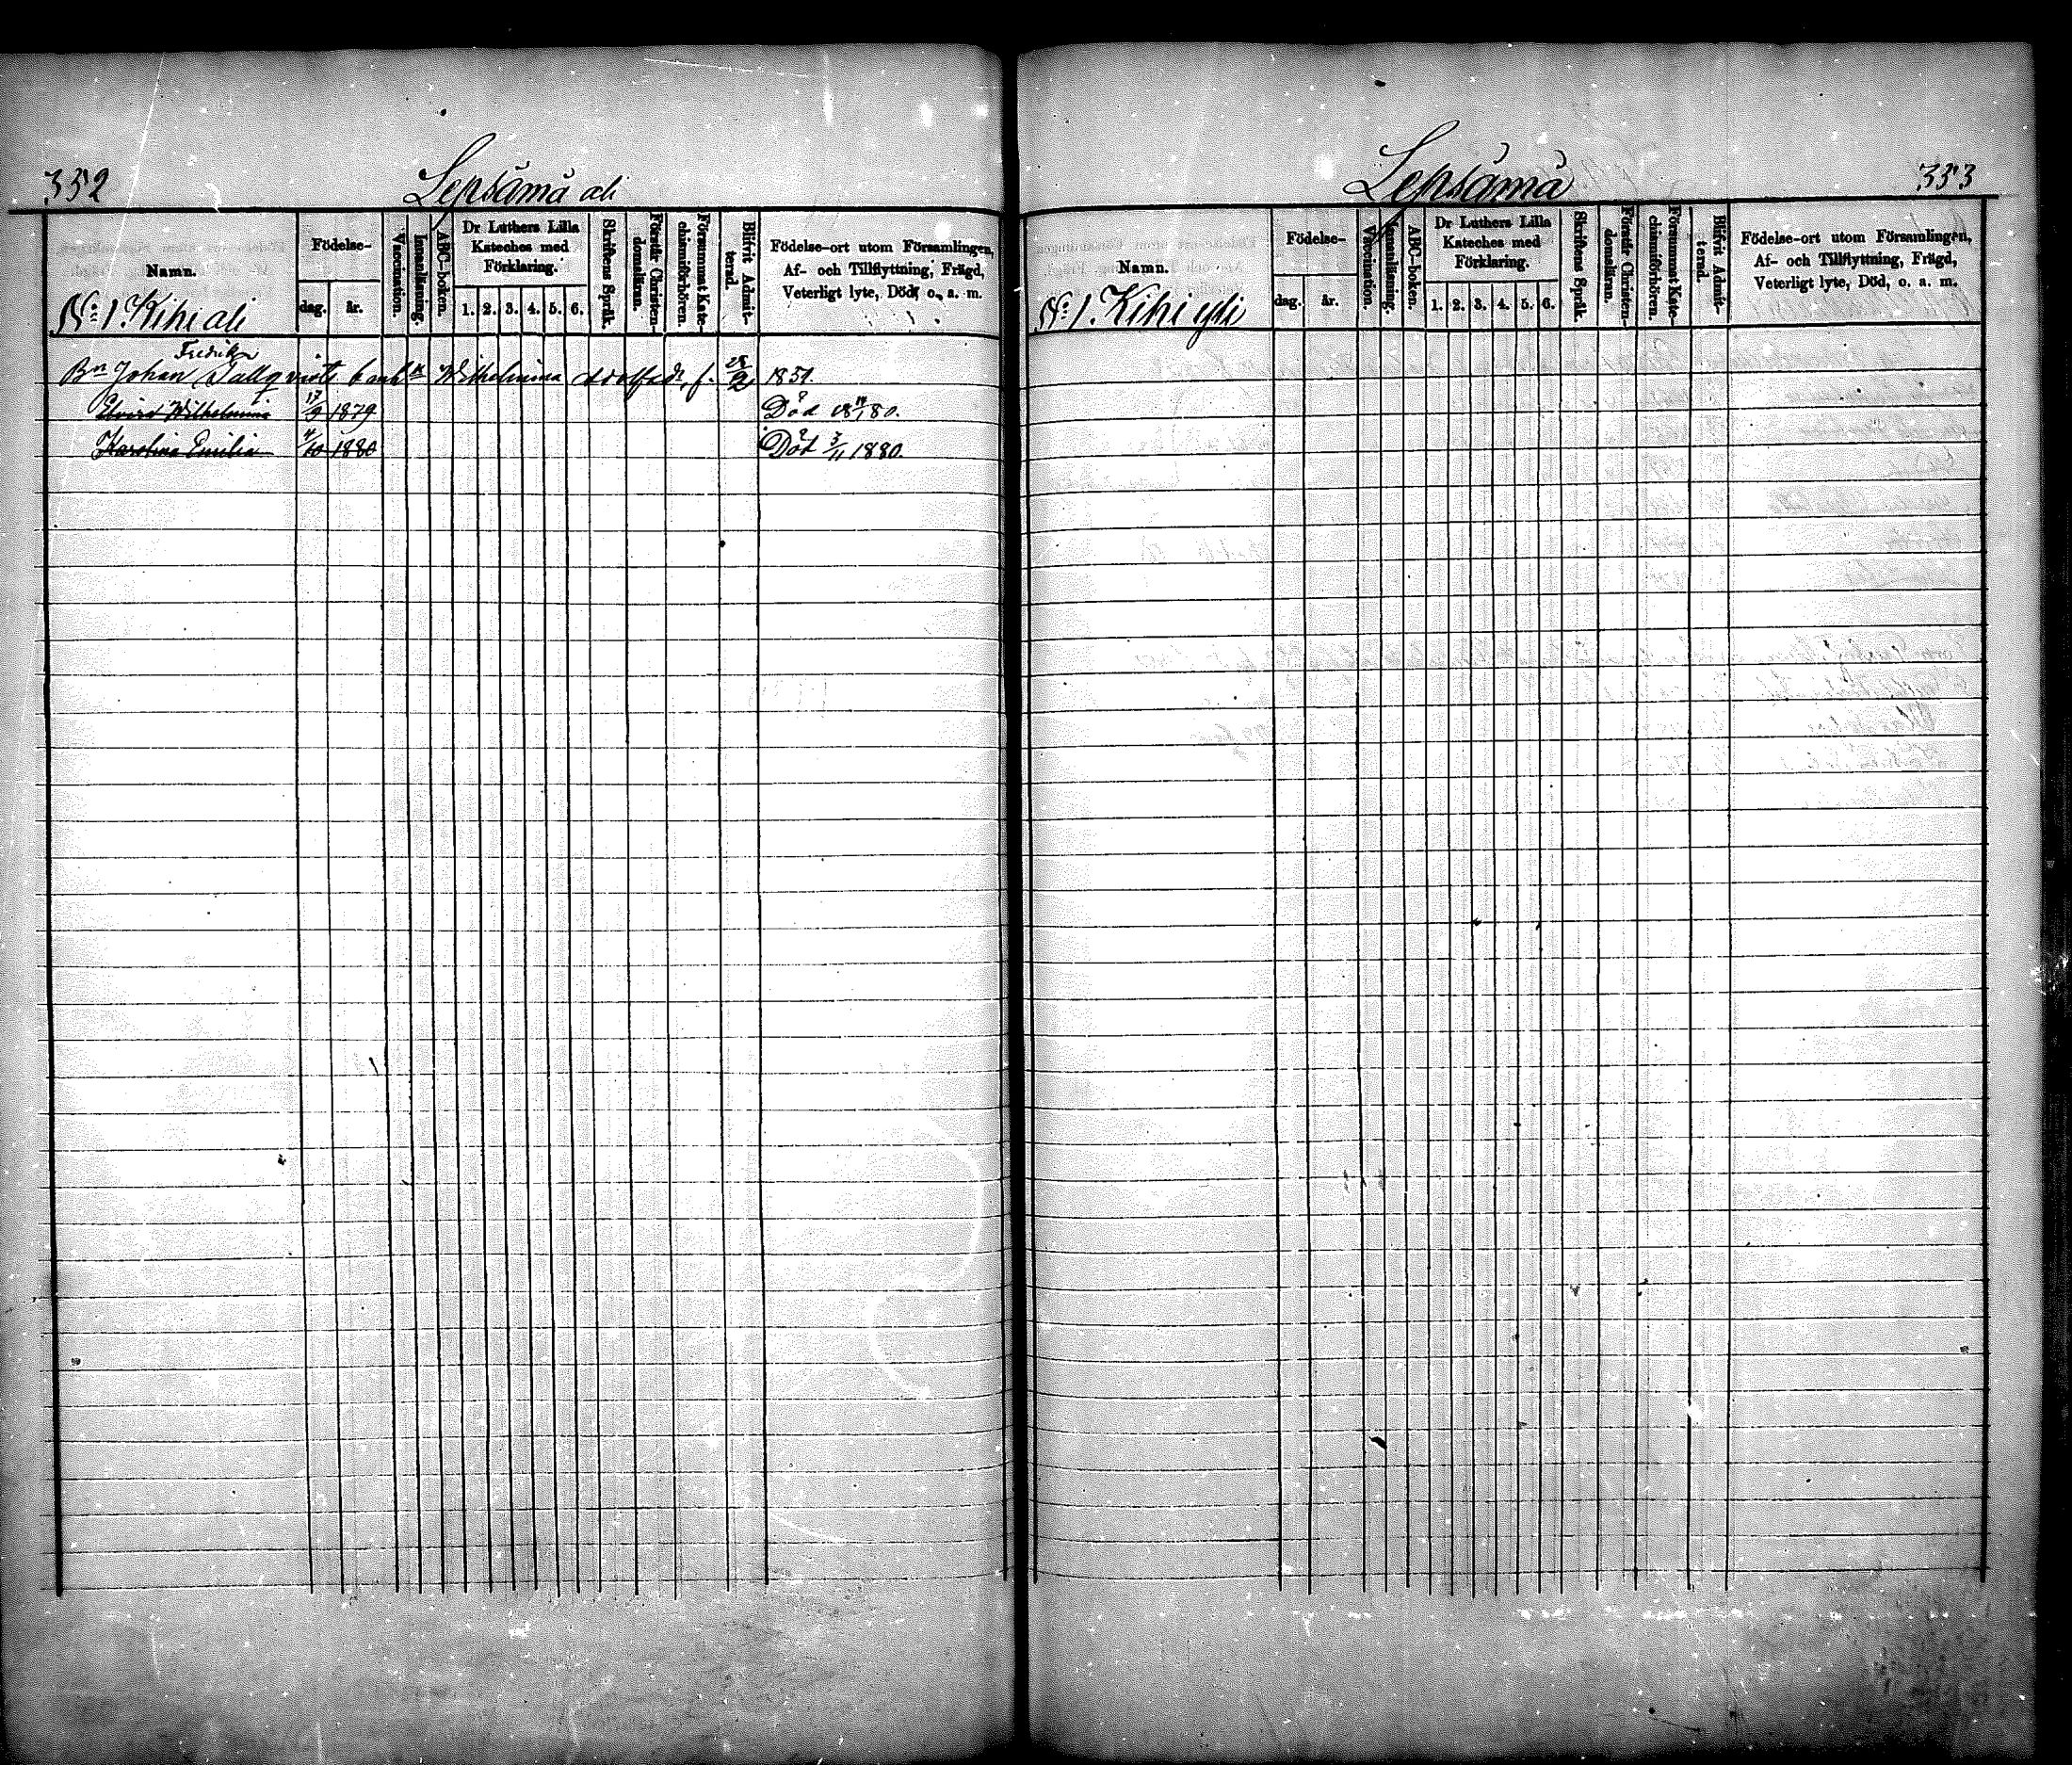 352
Lepsämä ali
Namn.
Födelse-
dag.
år.
Vaccination.
Innanläsning.
ABC-boken.
Dr Luthers Lilla
Kateches med
Förklaring.
1. 2. 3. 4. 5. 6.
Skriftens Språk.
Förstår Christen-
domsläran.
Försummat Kate-
chismiförhören.
Blifvit Admit-
terad.
Födelse-ort utom Församlingen,
Af- och Tillflyttning, Frägd,
Veterligt lyte, Död, o. a. m.
No 1. Kihi ali
Fredrik
Bn Johan Wilhelmina f. 1851.
Wilhelmina 17/9 1879 Död 80.
Karolina Emilia 4/10 1880 Död 3/11 1880.
Lepsämä
353
Namn.
Födelse-
dag.
år.
Vaccination.
Innanläsning.
ABC-boken.
Dr Luthers Lilla
Kateches med
Förklaring.
1. 2. 3. 4. 5. 6.
Skriftens Språk.
Förstår Christen-
domsläran.
Försummat Kate-
chismiförhören.
Blifvit Admit-
terad.
Födelse-ort utom Församlingen,
Af- och Tillflyttning, Frägd,
Veterligt lyte, Död, o. a. m.
No 1. Kihi yli